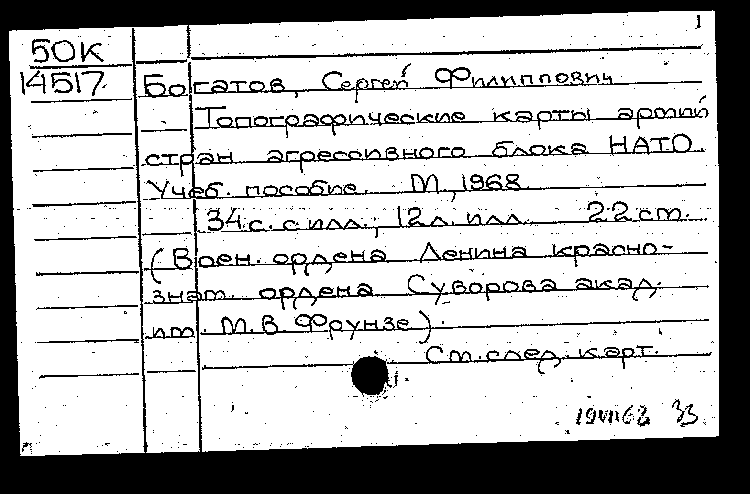 1
50К
14517 Богатов, Сергей Филиппович
Топографические карты армий
стран агрессивного блока НАТО.
Учеб. пособие. М., 1968
34 с. с илл.; 12 л. илл. 22 см.
(Воен. ордена Ленина красно-
знам. ордена Суворова акад.
им. М.В. Фрунзе).
См. след. карт.
19VII68 33